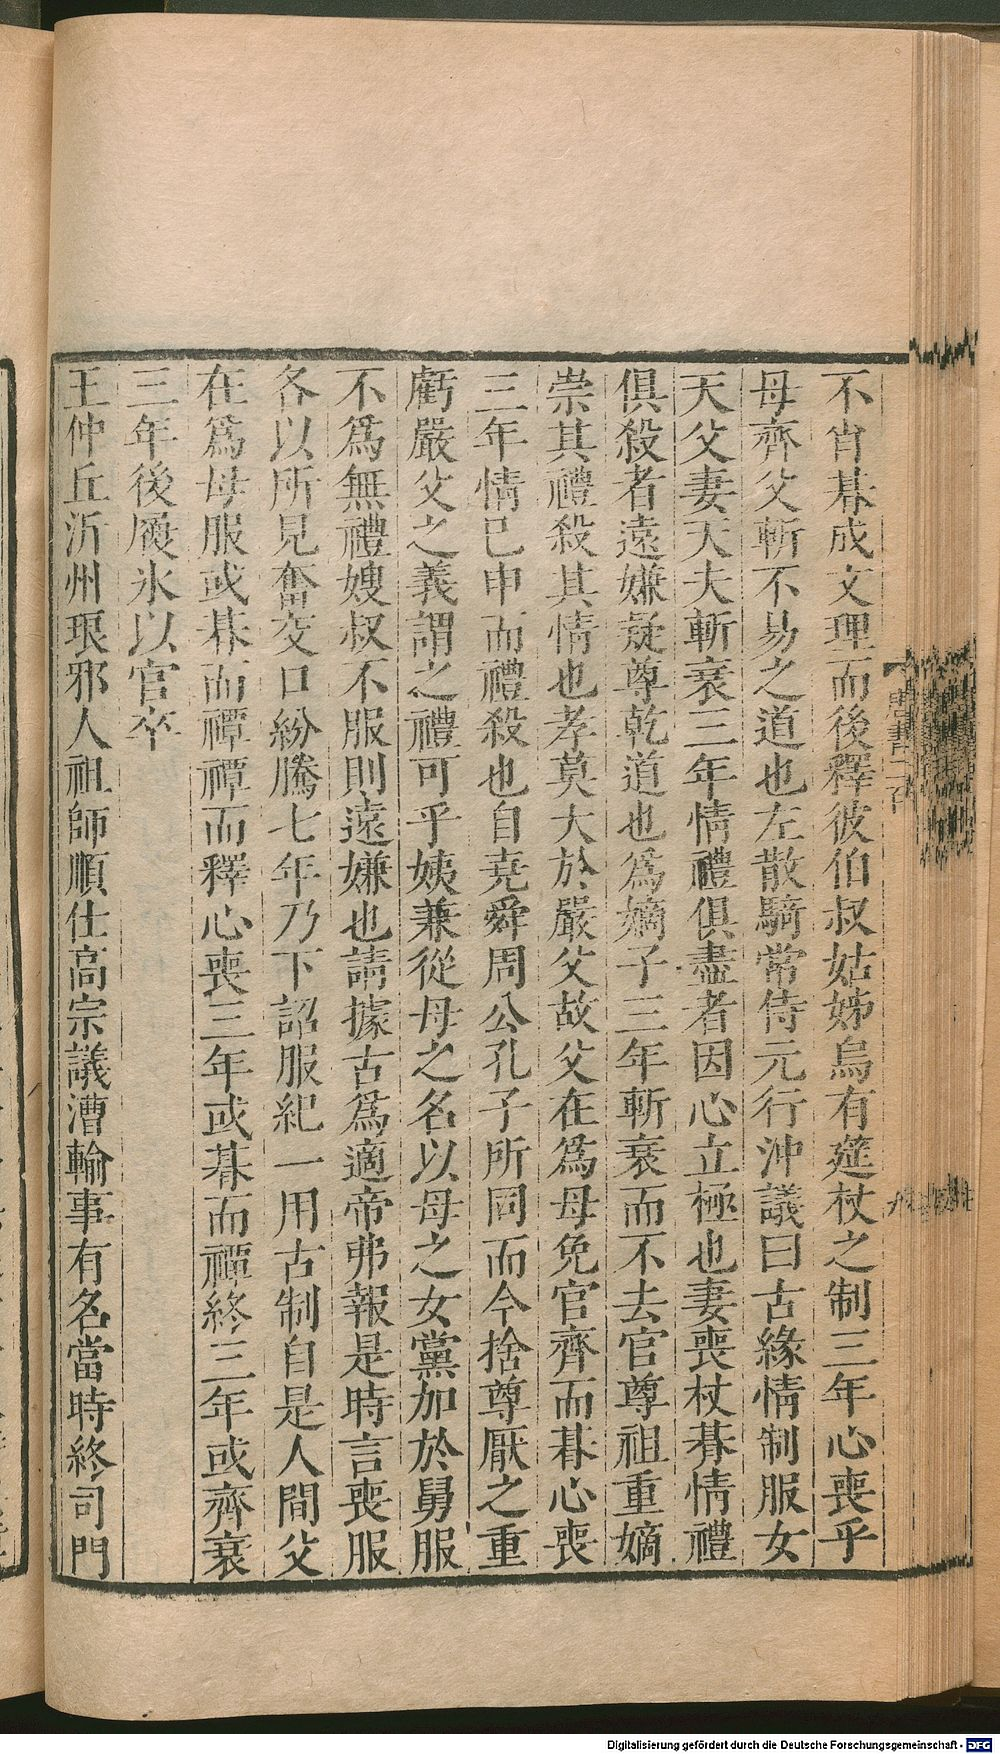 不肖朞成文理而後釋彼伯叔姑姊烏有筵杖之制三年心喪乎
母齊父斬不易之道也左散騎常侍元行沖議曰古緣情制服女
天父妻天夫斬衰三年情禮俱盡者因心立極也妻喪杖朞情禮
俱殺者遠嫌疑尊乾道也爲嫡子三年斬衰而不去官尊祖重嫡
崇其禮殺其情也孝莫大於嚴父故父在爲母免官齊而朞心喪
三年情已申而禮殺也自堯舜周公孔子所同而今捨尊厭之重
虧嚴父之義謂之禮可乎姨兼從母之名以母之女黨加於舅服
不爲無禮嫂叔不服則遠嫌也請據古爲適帝弗報是時言喪服
各以所見奮交口紛騰七年乃下詔服紀一用古制自是人間父
在爲母服或朞而禫禫而釋心喪三年或朞而禫終三年或齊衰
三年後履氷以官卒
王仲丘沂州琅邪人祖師順仕高宗議漕輸事有名當時終司門
Digitalisierung gefördert durch die Deutsche Forschungsgemeinschaft - DFG